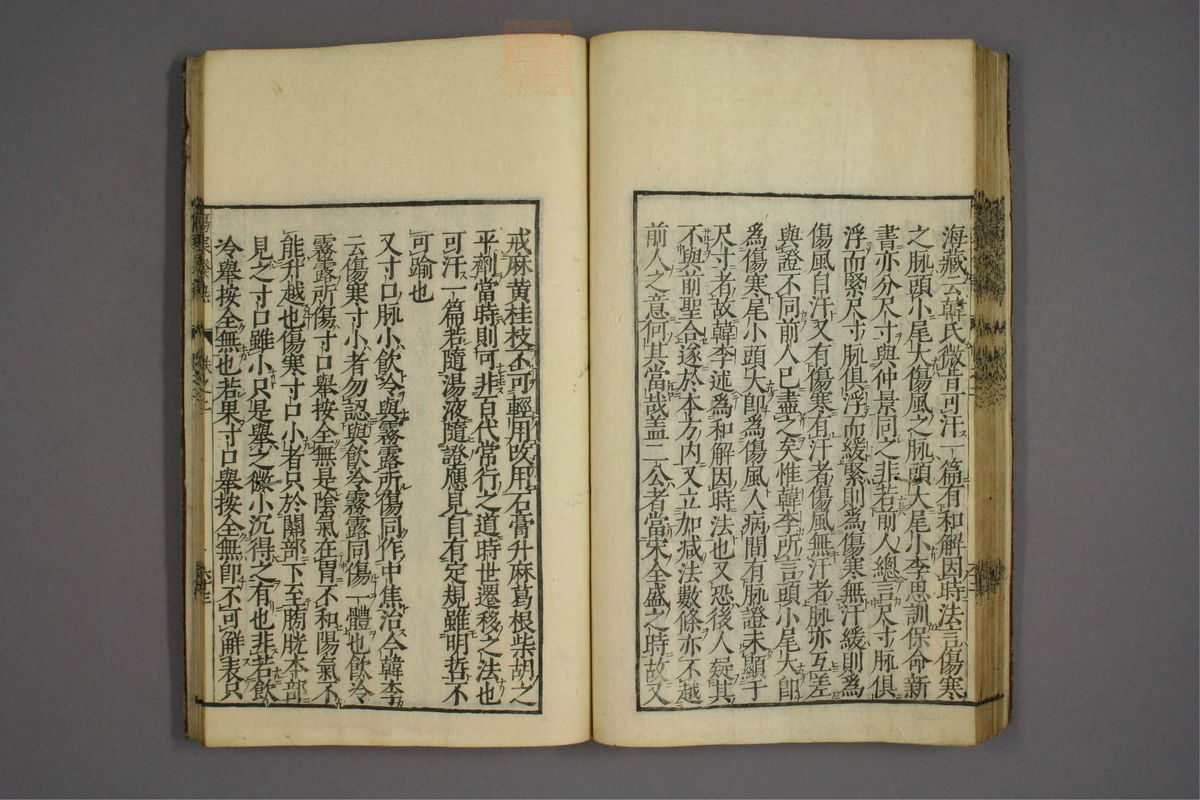 海藏云韓氏微旨可汗一篇有和解因時法言傷寒
之脉頭小尾大傷風之脉頭大尾小李思訓保命新
書亦分尺寸與仲景同之非若前人總言尺寸脉俱
浮而緊尺寸脉俱浮而緩緊則爲傷寒無汗緩則爲
傷風自汗又有傷寒有汗者傷風無汗者脉亦互差
與證不同前人已盡之矣惟韓李所言頭小尾大卽
爲傷寒尾小頭大卽爲傷風人病間有脉證未顯于
尺寸者故韓李述爲和解因時法也又恐後人疑其
不與前聖合遂於本方內又立加減法數條亦不越
前人之意何其當哉蓋二公者當宋全盛之時故又
戒麻黃桂枝不可輕用改用石膏升麻葛根柴胡之
平劑當時則可非百代常行之道時世遷移之法也
可汗一篇若隨湯液隨證應見自有定規雖明哲不
可踰也
又寸口脉小飮冷與霧露所傷同作中焦治今韓李
云傷寒寸小者勿認與飮冷霧露同傷一體也飮冷
霧露所傷寸口舉按全無是陰氣在胃不和陽氣不
能升越也傷寒寸口小者只於關部下至膀胱本部
見之寸口雖小只是舉之微小沉得之有也非若飮
冷舉按全無也若果寸口舉按全無卽不可解表只